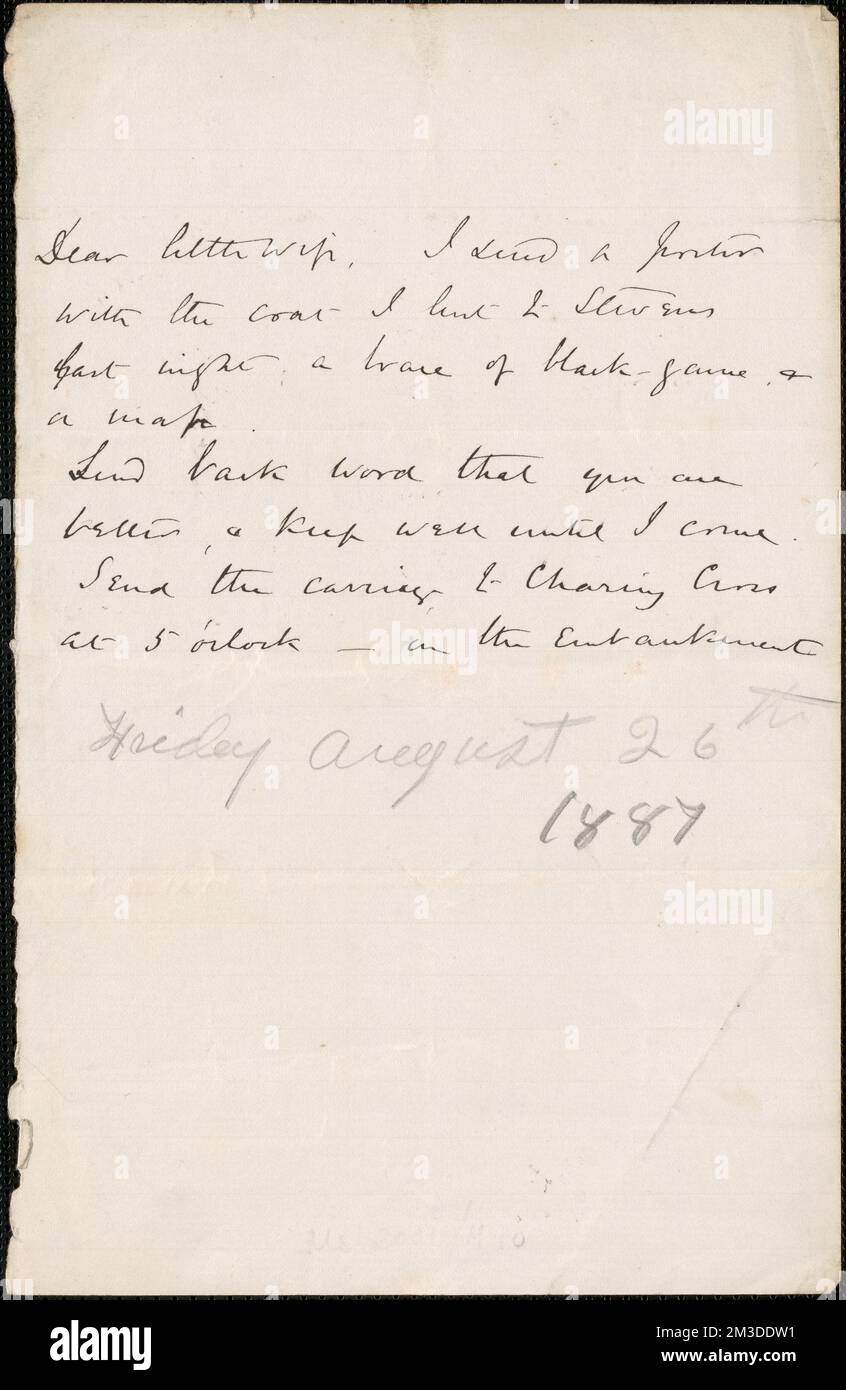 Dear little wife, I send a porter
with the coat I lent to Stevens
last night, a brace of black-game, &
a map.
Send back word that you are
better, & keep well until I come.
Send the carriage to Charing Cross
at 5 o'clock — on the Embankment
Friday August 26th
1887
alamy
alamy
alamy
www.alamy.com
Image ID: 2M3DDW1